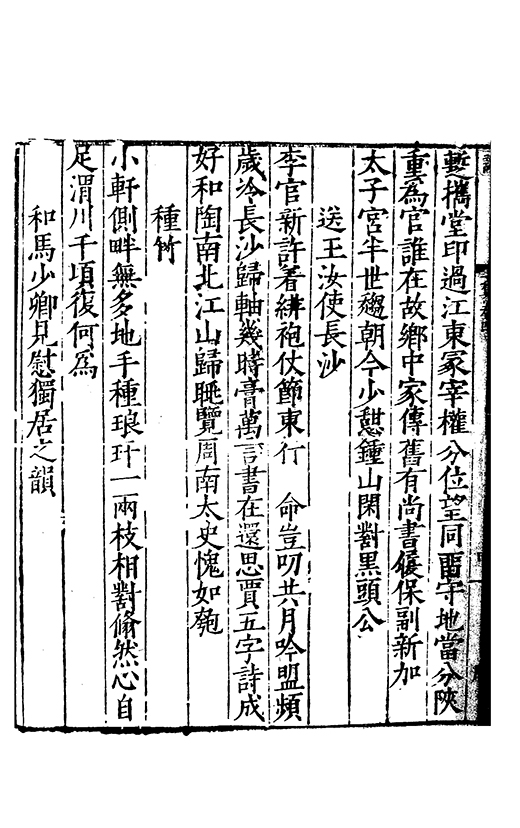 藝擕堂印過江東冢宰權分位望同畱守地當分陝
重為官誰在故鄉中家傳舊有尚書履保副新加
太子宮半世趨朝今少憇鍾山閑對黒頭公
送王汝使長沙
李官新許着緋袍仗節東行 命豈叨共月吟盟頻
歲冷長沙歸軸幾時膏萬言書在還思賈五字詩成
好和陶南北江山歸眺覽周南太史愧如匏
種竹
小軒側畔無多地手種琅玕一兩枝相對翛然心自
足渭川千頃復何爲
和馬少卿見慰獨居之韻